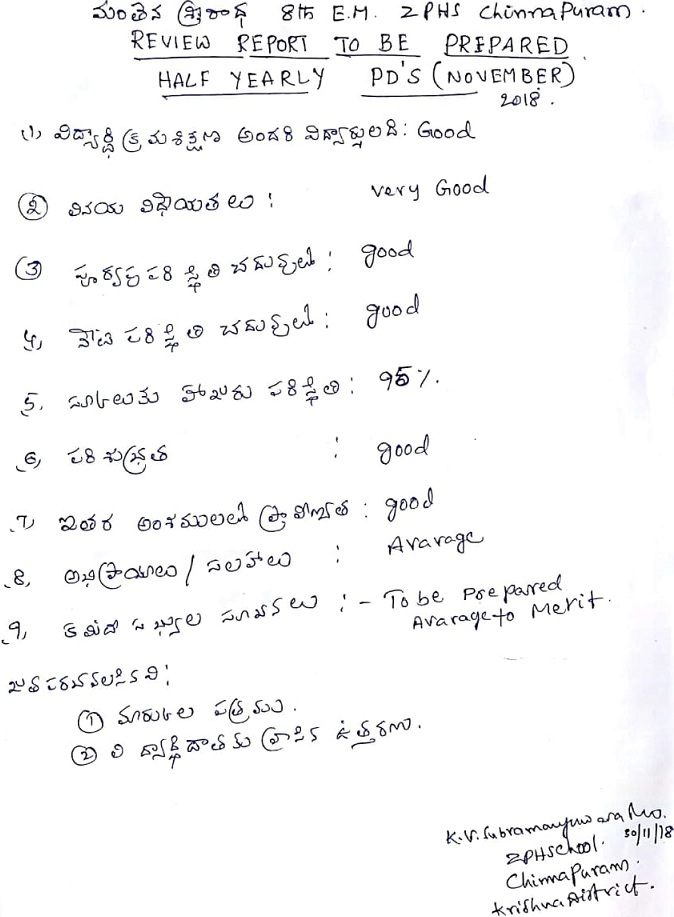 మంతెన శ్రీరాధ 8th E.M. ZPHS Chinnapuram.
REVIEW REPORT TO BE PREPARED
HALF YEARLY PD'S (NOVEMBER)
2018.
(1) విద్యార్థి క్రమశిక్షణ అందరి విద్యార్థులది: Good
(2) వినయ విధేయతలు : very Good
(3) పూర్వపు పరిస్థితి చదువులో : good
4, నేటి పరిస్థితి చదువులో : good
5. స్కూలుకు హాజరు పరిస్థితి : 95%.
6, పరిశుభ్రత : good
7, ఇతర అంశములలో ప్రావీణ్యత : good
8, అభిప్రాయాలు / సలహాలు : Avarage
9, కమిటి సభ్యుల సూచనలు :- To be Prepared
Avarage to Merit.
జత పరచవలసినవి:
(1) మార్కుల పత్రము.
(2) విద్యార్థి దాతకు వ్రాసిన ఉత్తరము.
K.V. Subramanyeswara Rao.
30/11/18
ZPHSchool.
Chinnapuram.
Krishna District.